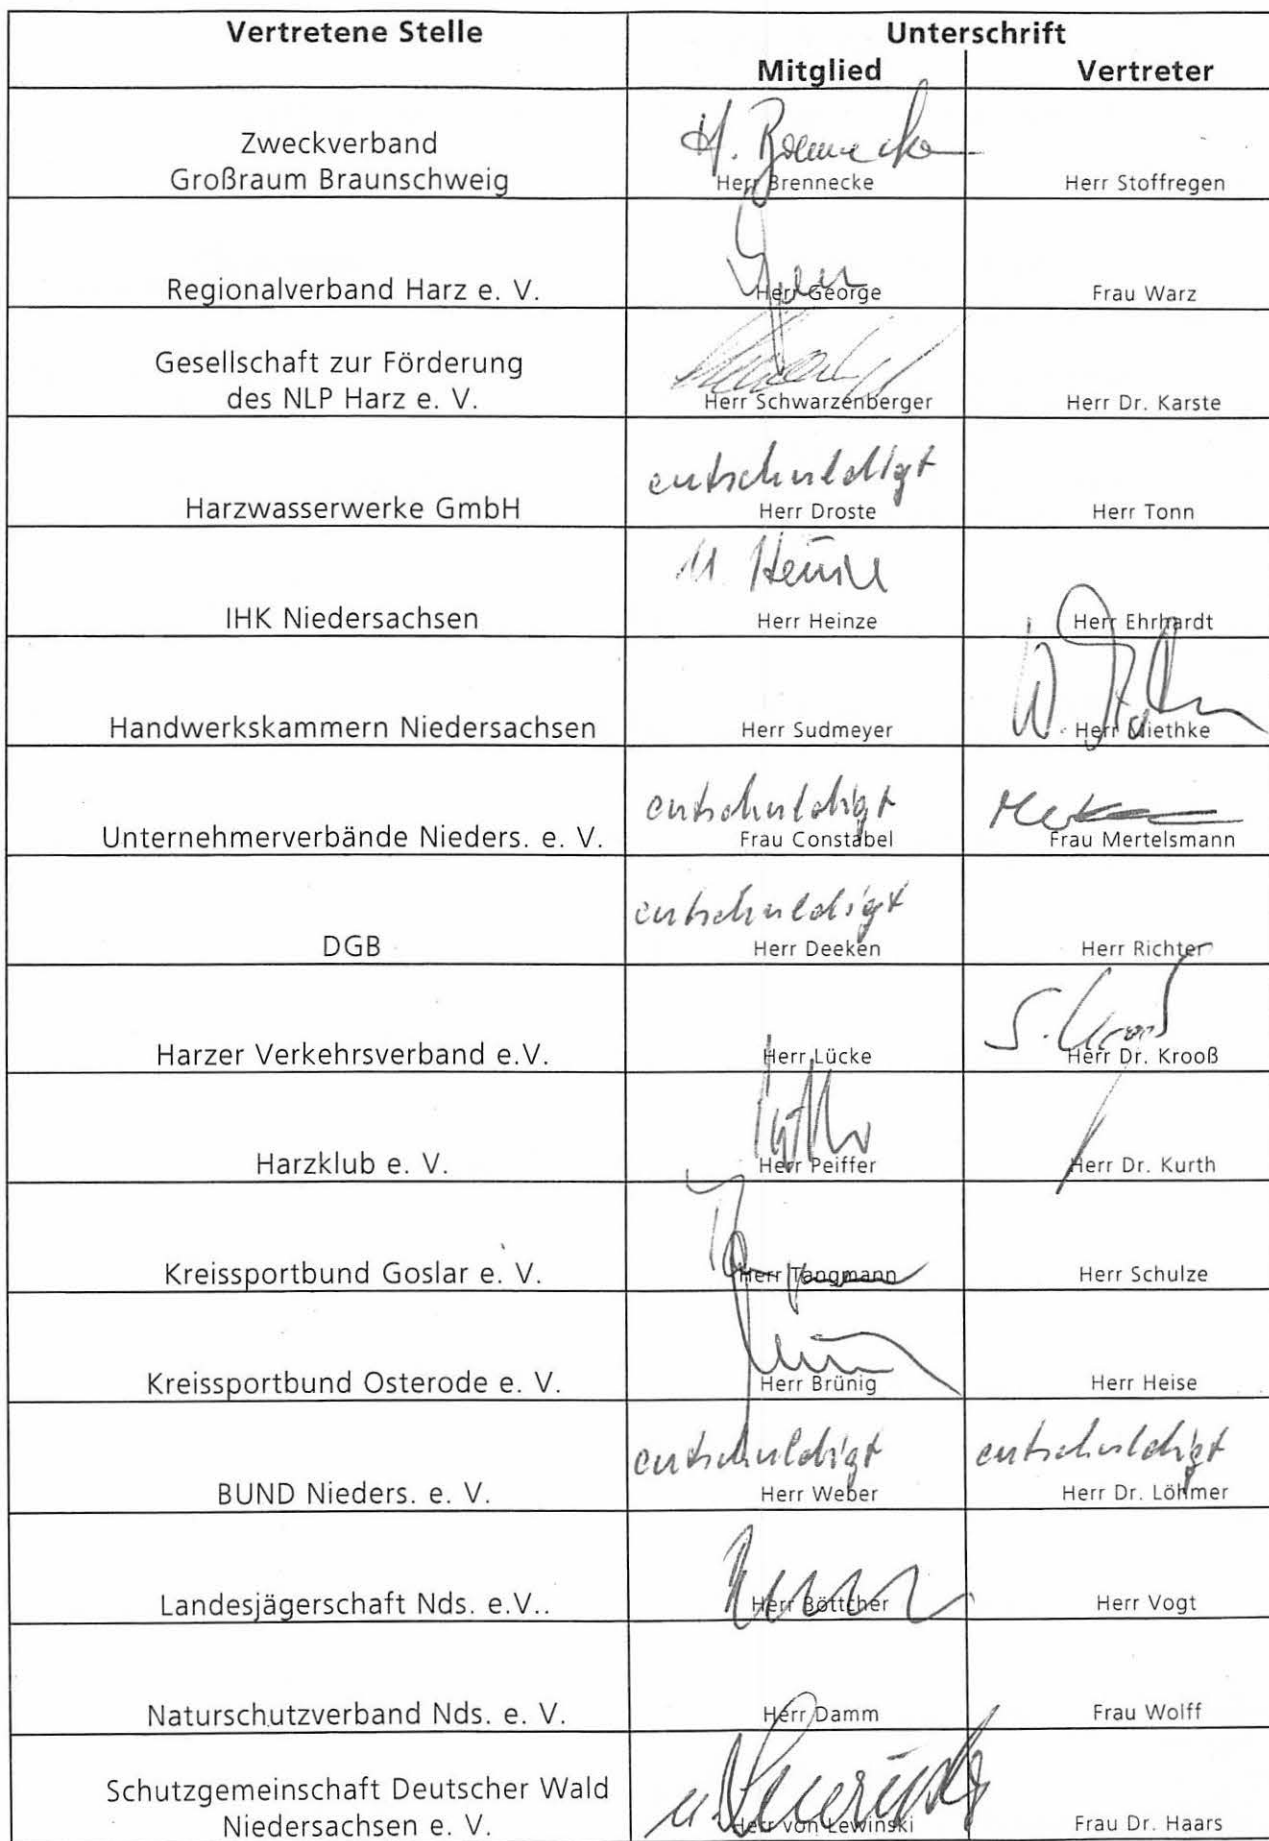 Vertretene Stelle Unterschrift
Mitglied Vertreter
Zweckverband
Großraum Braunschweig
H. Brennecke
Herr Brennecke Herr Stoffregen
Regionalverband Harz e. V. Herr George Frau Warz
Gesellschaft zur Förderung
des NLP Harz e. V.
Herr Schwarzenberger Herr Dr. Karste
entschuldigt
Harzwasserwerke GmbH Herr Droste Herr Tonn
IHK Niedersachsen Herr Heinze Herr Ehrhardt
Handwerkskammern Niedersachsen Herr Sudmeyer Herr Miethke
entschuldigt
Unternehmerverbände Nieders. e. V. Frau Constabel Frau Mertelsmann
entschuldigt
DGB Herr Deeken Herr Richter
S. Krooß
Harzer Verkehrsverband e.V. Herr Lücke Herr Dr. Krooß
Harzklub e. V. Herr Peiffer Herr Dr. Kurth
Kreissportbund Goslar e. V. Herr Tangmann Herr Schulze
Kreissportbund Osterode e. V. Herr Brünig Herr Heise
entschuldigt entschuldigt
BUND Nieders. e. V. Herr Weber Herr Dr. Löhmer
Landesjägerschaft Nds. e.V.. Herr Böttcher Herr Vogt
Naturschutzverband Nds. e. V. Herr Damm Frau Wolff
Schutzgemeinschaft Deutscher Wald
Niedersachsen e. V. Herr von Lewinski Frau Dr. Haars